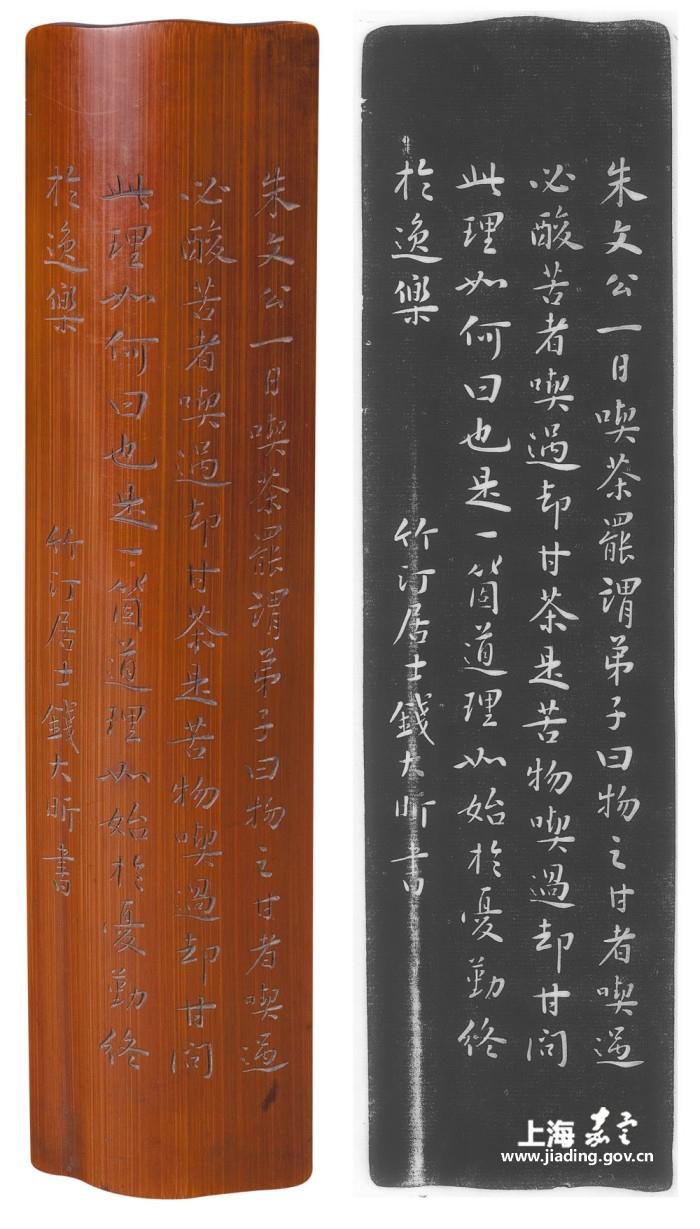 朱文公一日喫茶罷謂弟子曰物之甘者喫過
必酸苦者喫過却甘茶是苦物喫過却甘問
此理如何曰也是一箇道理如始於憂勤終
於逸樂 竹汀居士錢大昕書
朱文公一日喫茶罷謂弟子曰物之甘者喫過
必酸苦者喫過却甘茶是苦物喫過却甘問
此理如何曰也是一箇道理如始於憂勤終
於逸樂 竹汀居士錢大昕書
上海嘉定
www.jiading.gov.cn